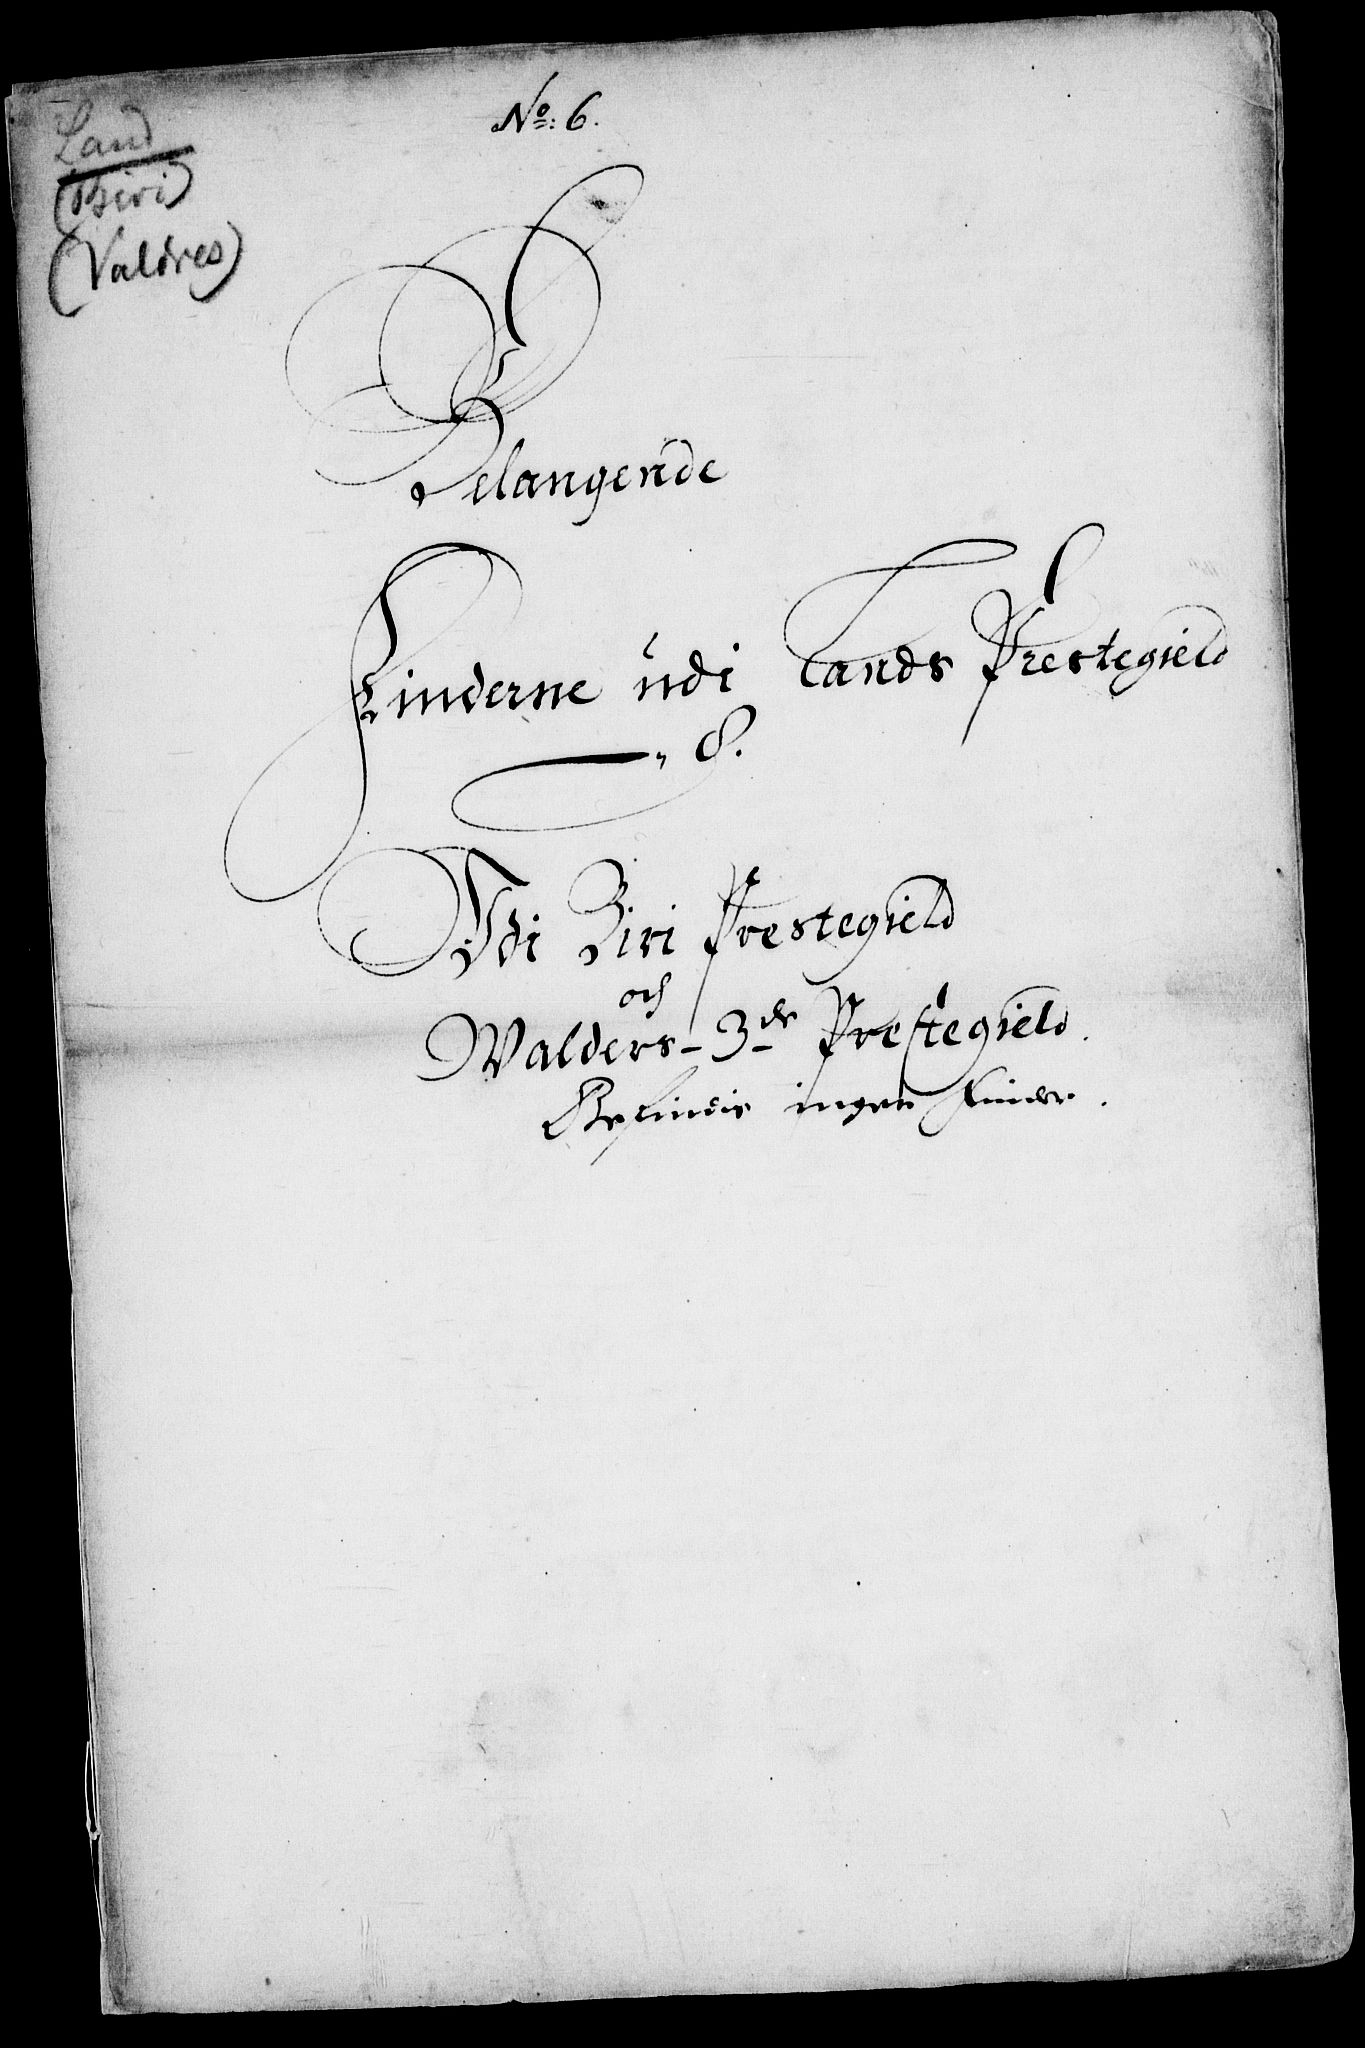 No: 6.
Land
(Biri)
(Valdres)
Belangende
Finderne udi Lands Prestegield
Udi Biri Prestegield
och
Walders - 3de Prestegield.
Befindis ingen Finder.